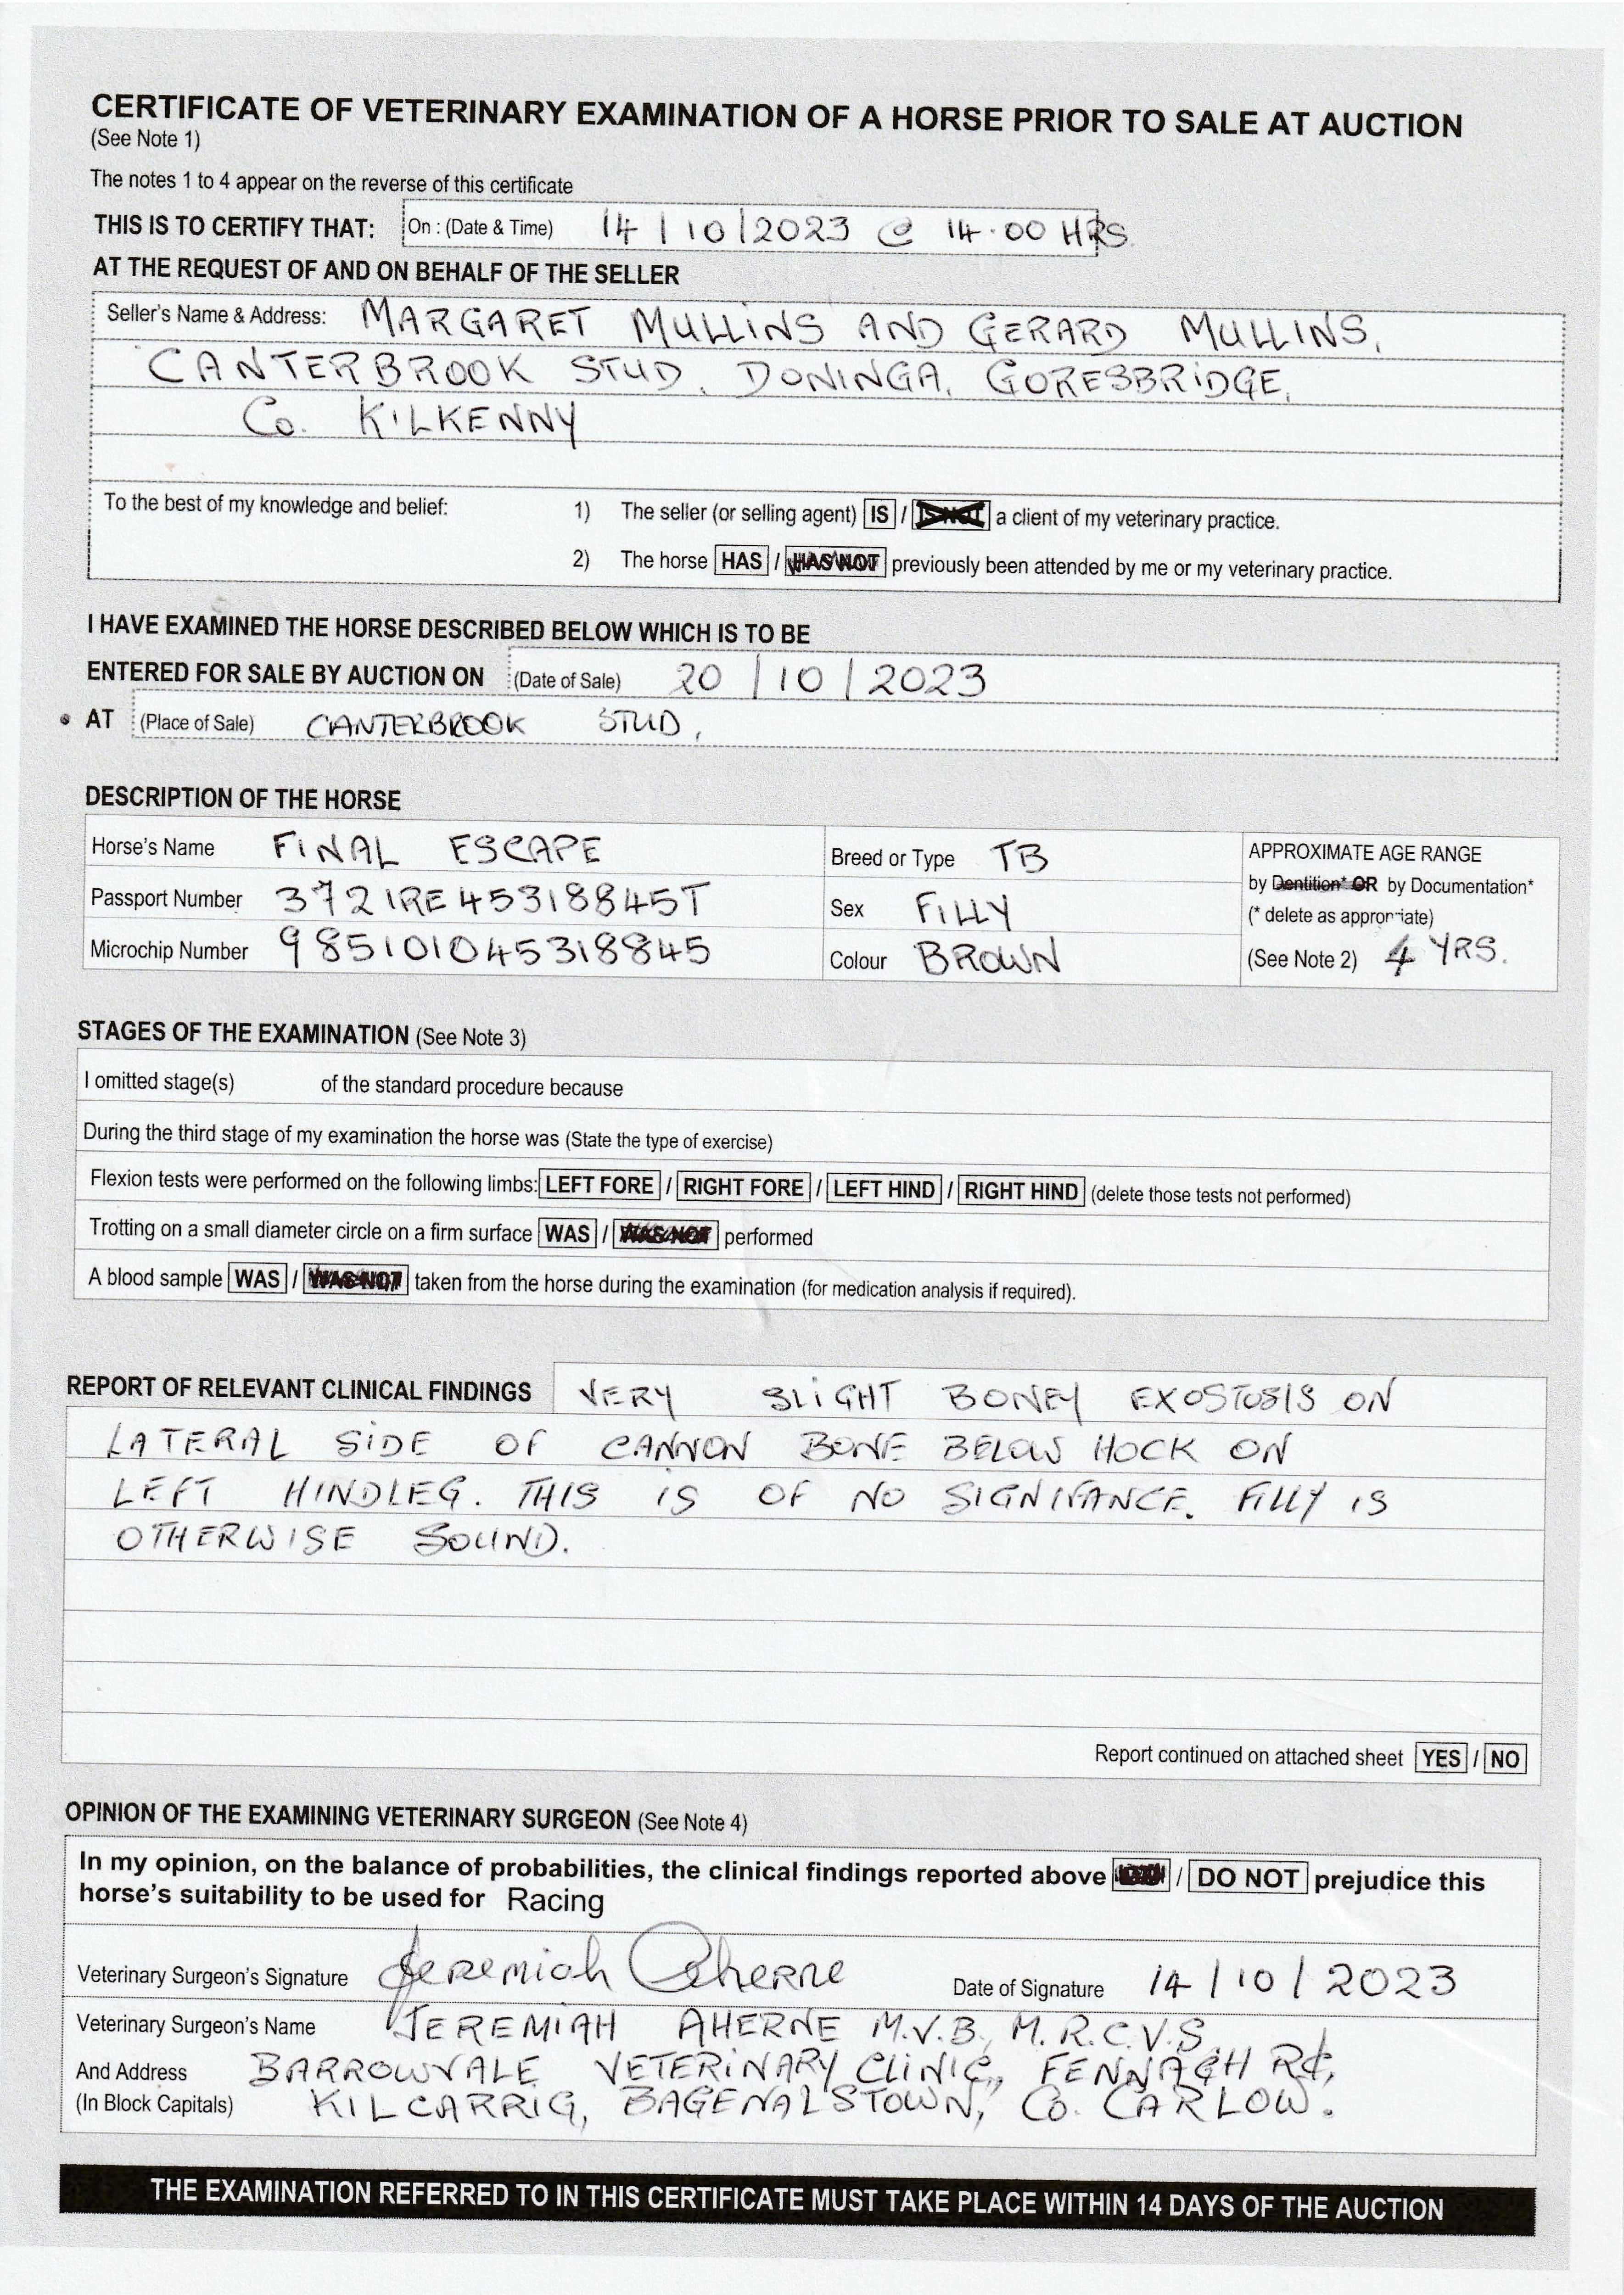 CERTIFICATE OF VETERINARY EXAMINATION OF A HORSE PRIOR TO SALE AT AUCTION
(See Note 1)
The notes 1 to 4 appear on the reverse of this certificate
THIS IS TO CERTIFY THAT: On : (Date & Time) 14 / 10 / 2023 @ 14.00 HRS
AT THE REQUEST OF AND ON BEHALF OF THE SELLER
Seller's Name & Address: MARGARET MULLINS AND GERARD MULLINS,
CANTERBROOK STUD, DONINGA, GORESBRIDGE,
Co. KILKENNY
To the best of my knowledge and belief: 1) The seller (or selling agent) IS / IS NOT a client of my veterinary practice.
2) The horse HAS / HAS NOT previously been attended by me or my veterinary practice.
I HAVE EXAMINED THE HORSE DESCRIBED BELOW WHICH IS TO BE
ENTERED FOR SALE BY AUCTION ON (Date of Sale) 20 / 10 / 2023
AT (Place of Sale) CANTERBROOK STUD,
DESCRIPTION OF THE HORSE
Horse's Name FINAL ESCAPE Breed or Type TB APPROXIMATE AGE RANGE
Passport Number 372IRE45318845T Sex FILLY by Dentition* OR by Documentation*
(* delete as appropriate)
Microchip Number 985101045318845 Colour BROWN (See Note 2) 4 YRS.
STAGES OF THE EXAMINATION (See Note 3)
I omitted stage(s) of the standard procedure because
During the third stage of my examination the horse was (State the type of exercise)
Flexion tests were performed on the following limbs: LEFT FORE / RIGHT FORE / LEFT HIND / RIGHT HIND (delete those tests not performed)
Trotting on a small diameter circle on a firm surface WAS / WAS NOT performed
A blood sample WAS / WAS NOT taken from the horse during the examination (for medication analysis if required).
REPORT OF RELEVANT CLINICAL FINDINGS VERY SLIGHT BONEY EXOSTOSIS ON
LATERAL SIDE OF CANNON BONE BELOW HOCK ON
LEFT HINDLEG. THIS IS OF NO SIGNIFANCE. FILLY IS
OTHERWISE SOUND.
Report continued on attached sheet YES / NO
OPINION OF THE EXAMINING VETERINARY SURGEON (See Note 4)
In my opinion, on the balance of probabilities, the clinical findings reported above / DO NOT prejudice this
horse's suitability to be used for Racing
Veterinary Surgeon's Signature Jeremiah Aherne Date of Signature 14 / 10 / 2023
Veterinary Surgeon's Name JEREMIAH AHERNE M.V.B., M.R.C.V.S.
And Address BARROWVALE VETERINARY CLINIC, FENNAGH Rd,
(In Block Capitals) KILCARRIG, BAGENALSTOWN, Co. CARLOW.
THE EXAMINATION REFERRED TO IN THIS CERTIFICATE MUST TAKE PLACE WITHIN 14 DAYS OF THE AUCTION